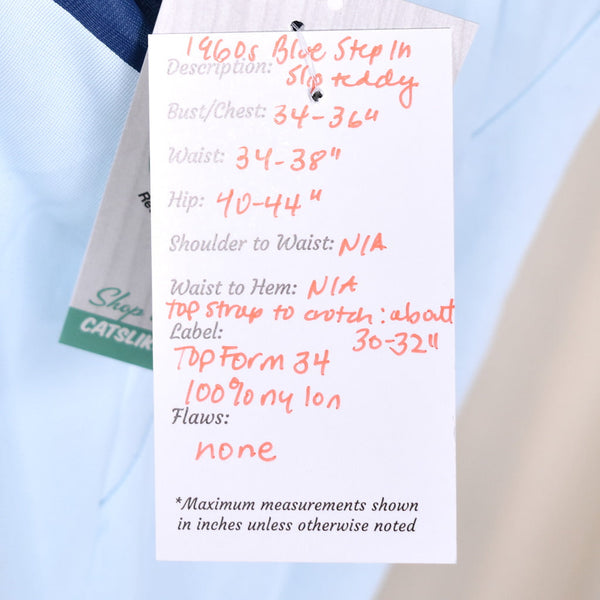 1960s Blue Step In
Description: Slip teddy
Bust/Chest: 34-36"
Waist: 34-38"
Hip: 40-44"
Shoulder to Waist: N/A
Waist to Hem: N/A
top strap to crotch: about
Label: 30-32"
Top Form 34
100% nylon
Flaws:
none
*Maximum measurements shown
in inches unless otherwise noted
Shop
CATSLIK